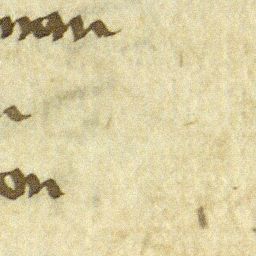 man
n
on